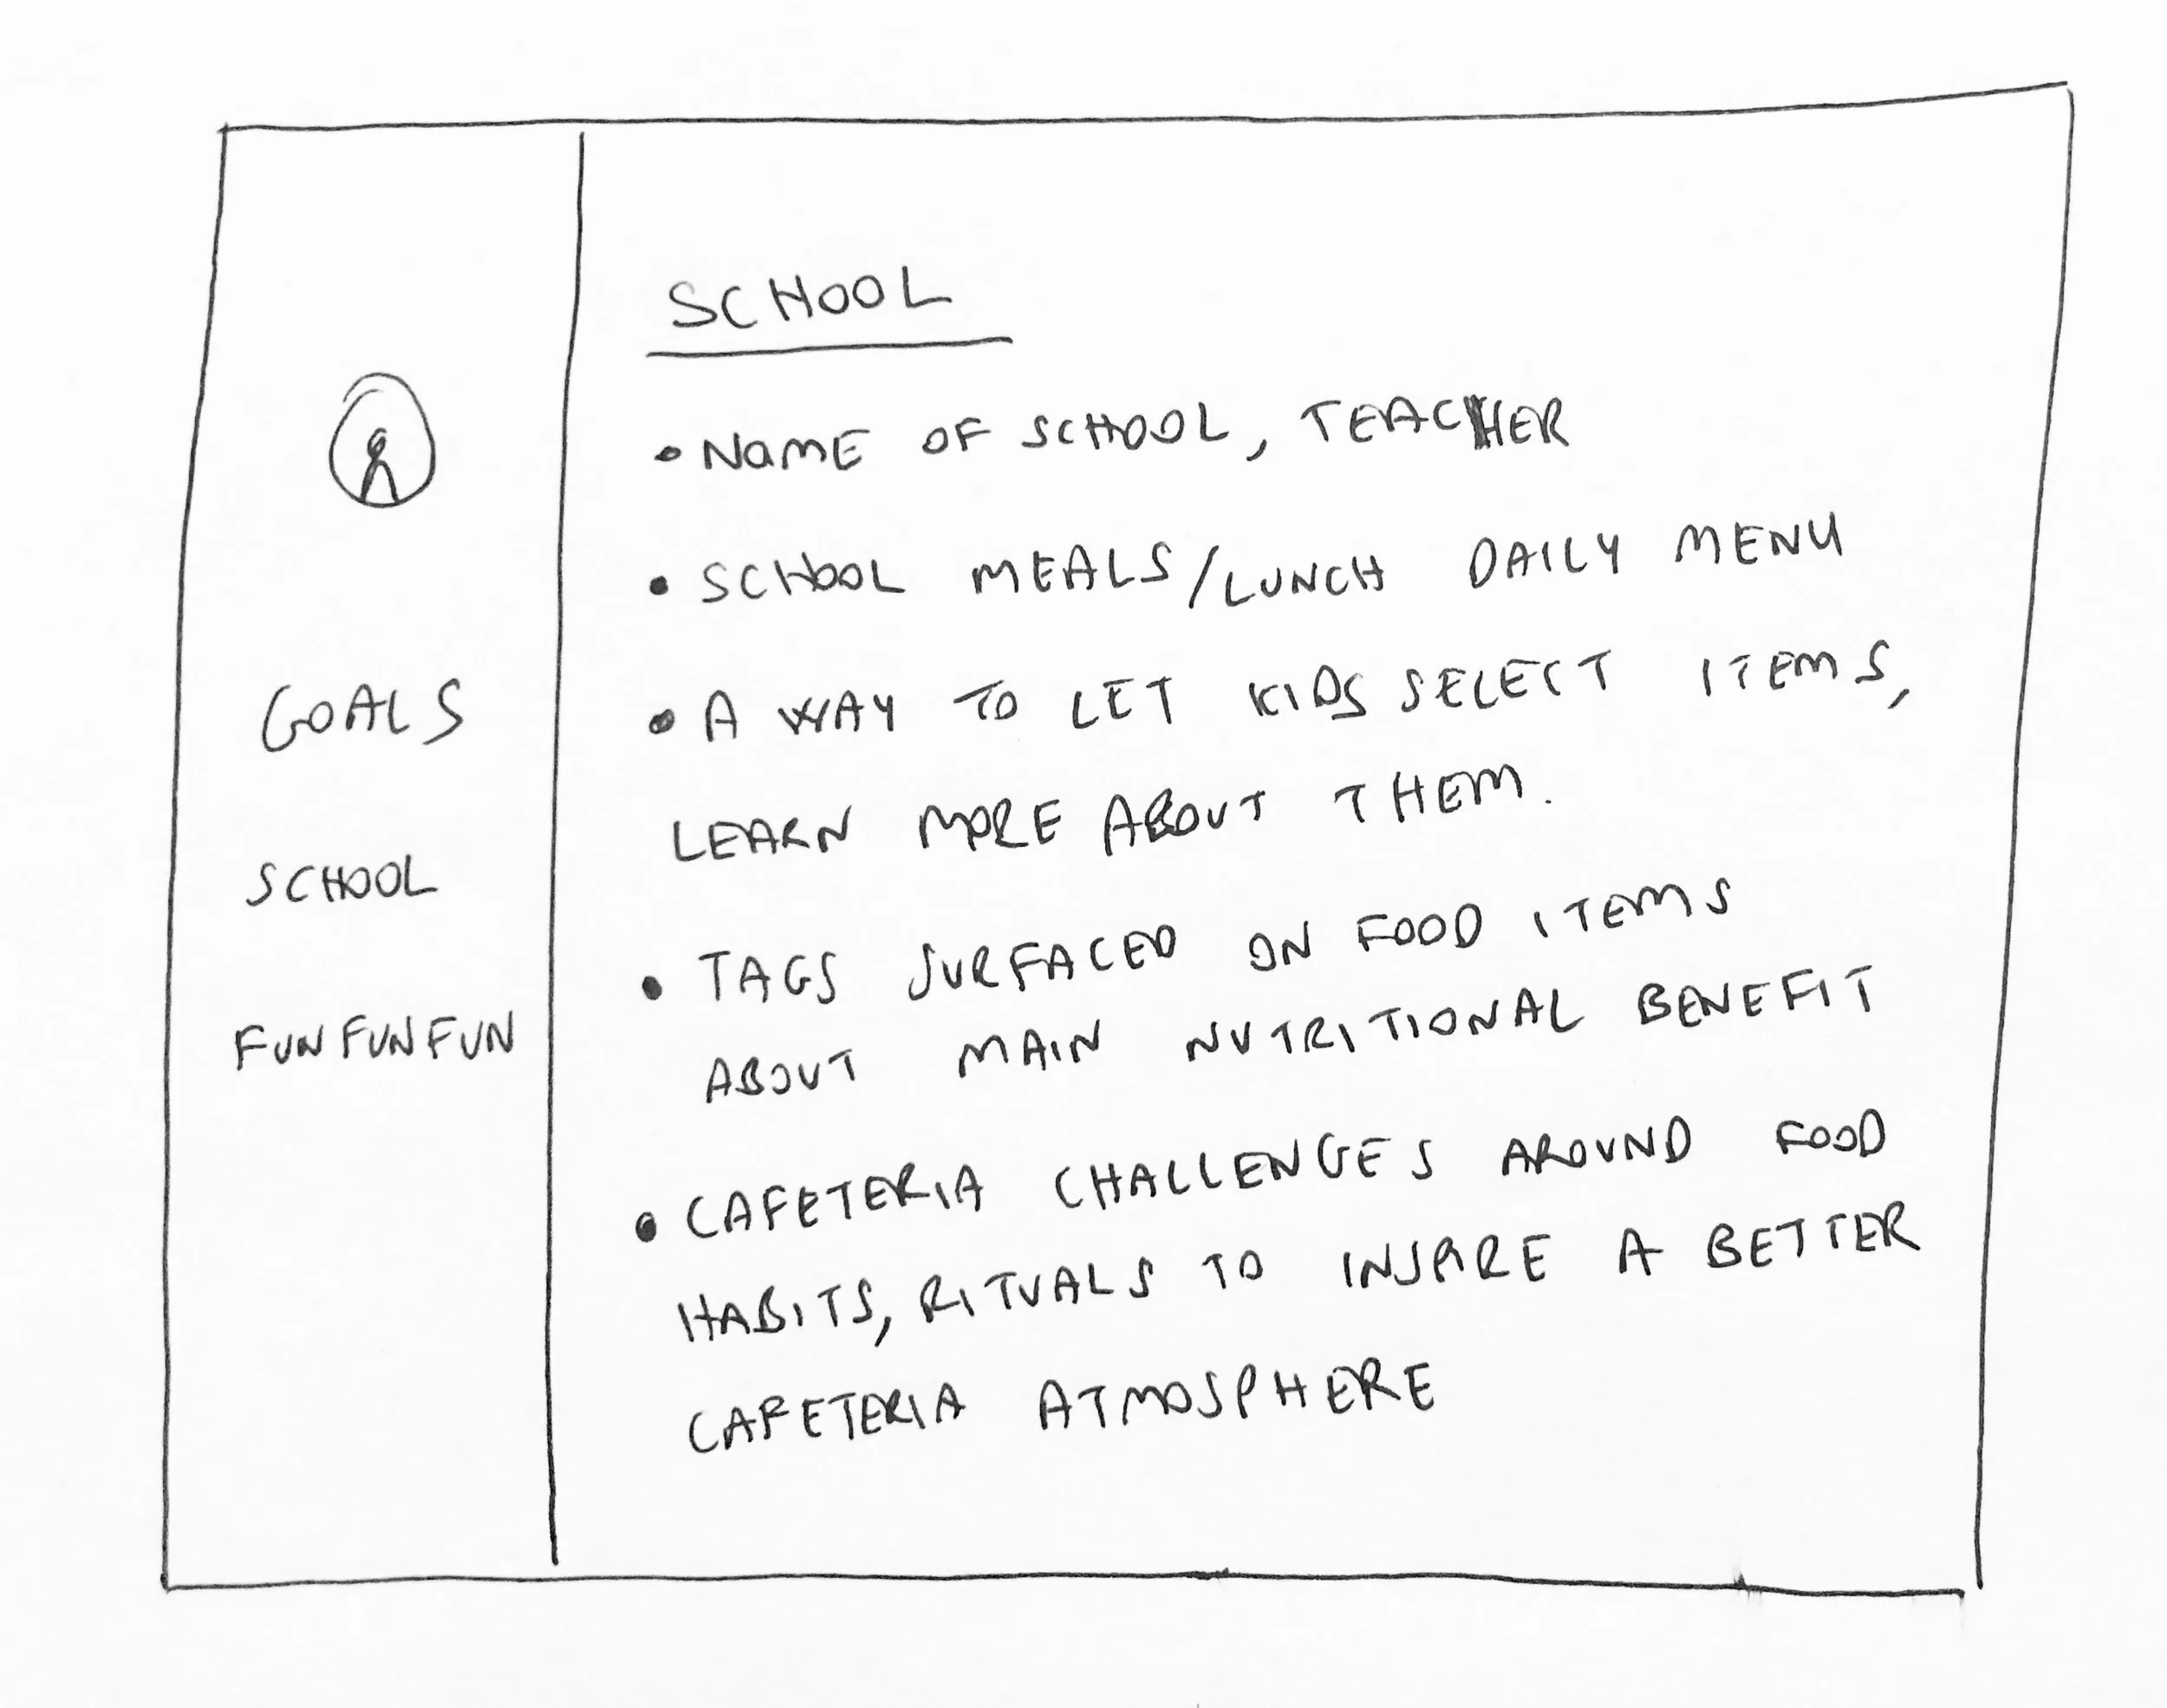 GOALS
SCHOOL
FUN FUN FUN
SCHOOL
• NAME OF SCHOOL, TEACHER
• SCHOOL MEALS/LUNCH DAILY MENU
• A WAY TO LET KIDS SELECT ITEMS,
LEARN MORE ABOUT THEM.
• TAGS SURFACED ON FOOD ITEMS
ABOUT MAIN NUTRITIONAL BENEFIT
• CAFETERIA CHALLENGES AROUND FOOD
HABITS, RITUALS TO INSPIRE A BETTER
CAFETERIA ATMOSPHERE